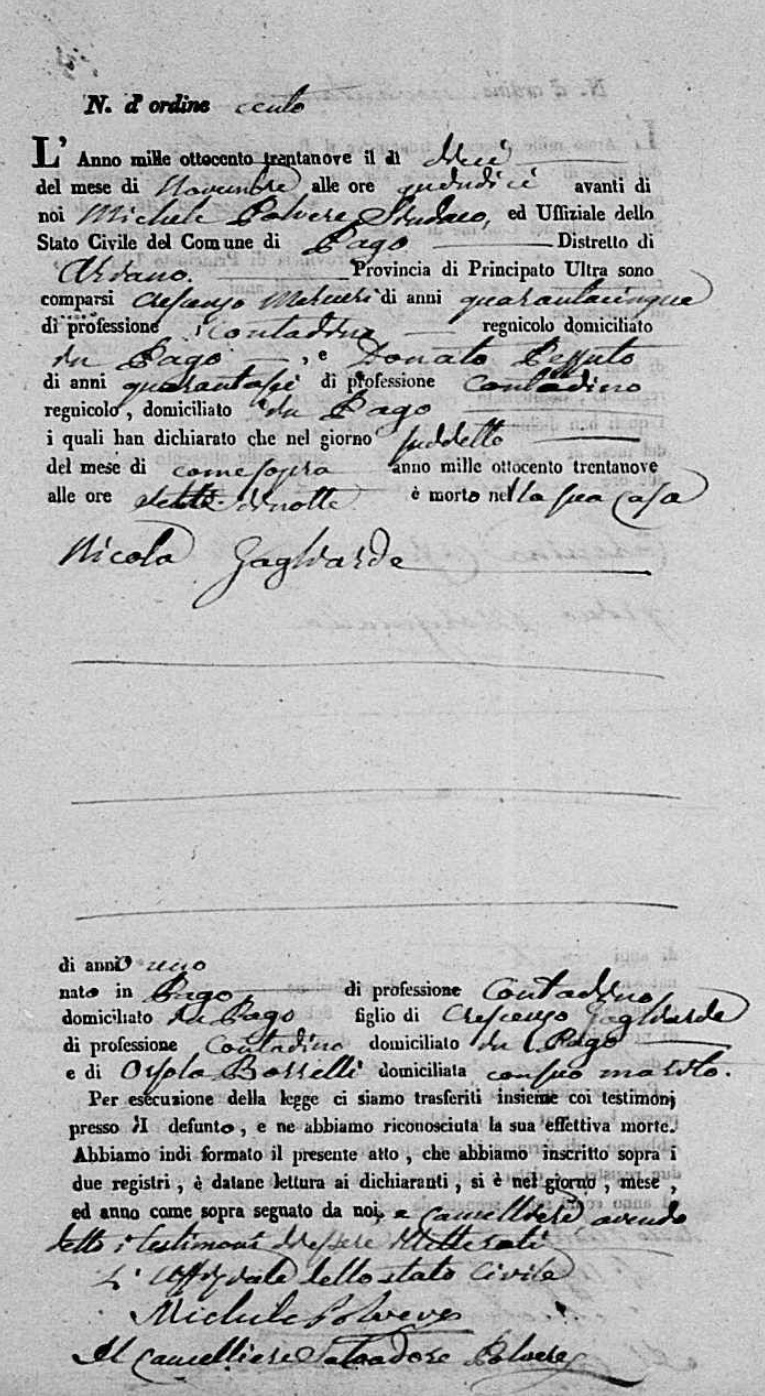 N. d' ordine cento
L' Anno mille ottocento trentanove il dì dieci
del mese di Novembre alle ore quindici avanti di
noi Michele Polvere Sindaco, ed Uffiziale dello
Stato Civile del Comune di Pago Distretto di
Ariano. Provincia di Principato Ultra sono
comparsi Crescenzo di anni quarantacinque
di professione contadino regnicolo domiciliato
in Pago , e Donato Pessuto
di anni quarantasei di professione contadino
regnicolo , domiciliato in Pago
i quali han dichiarato che nel giorno suddetto
del mese di come sopra anno mille ottocento trentanove
alle ore di notte è morto nella sua casa
Nicola Gagliarde
di anno uno
nato in Pago di professione Contadino
domiciliato in Pago figlio di Crescenzo Gagliarde
di professione Contadino domiciliato in Pago
e di Orsola Borrelli domiciliata con suo marito.
Per esecuzione della legge ci siamo trasferiti insieme coi testimonj
presso il defunto , e ne abbiamo riconosciuta la sua effettiva morte.
Abbiamo indi formato il presente atto , che abbiamo inscritto sopra i
due registri , è datane lettura ai dichiaranti , si è nel giorno , mese ,
ed anno come sopra segnato da noi, e Cancelliere avendo
detto i testimoni d'essere illitterati
L' Uffiziale dello stato Civile
Michele Polvere
Il Cancelliere Salvadore Polvere